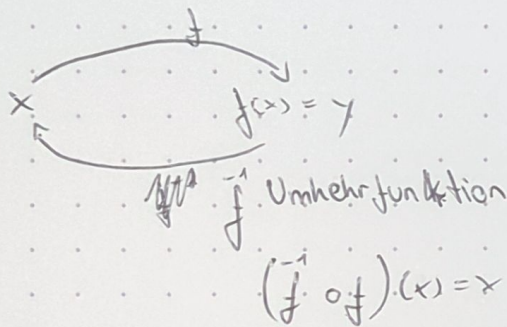 f
x
f(x) = y
f⁻¹ Umkehrfunktion
(f⁻¹ ∘ f)(x) = x